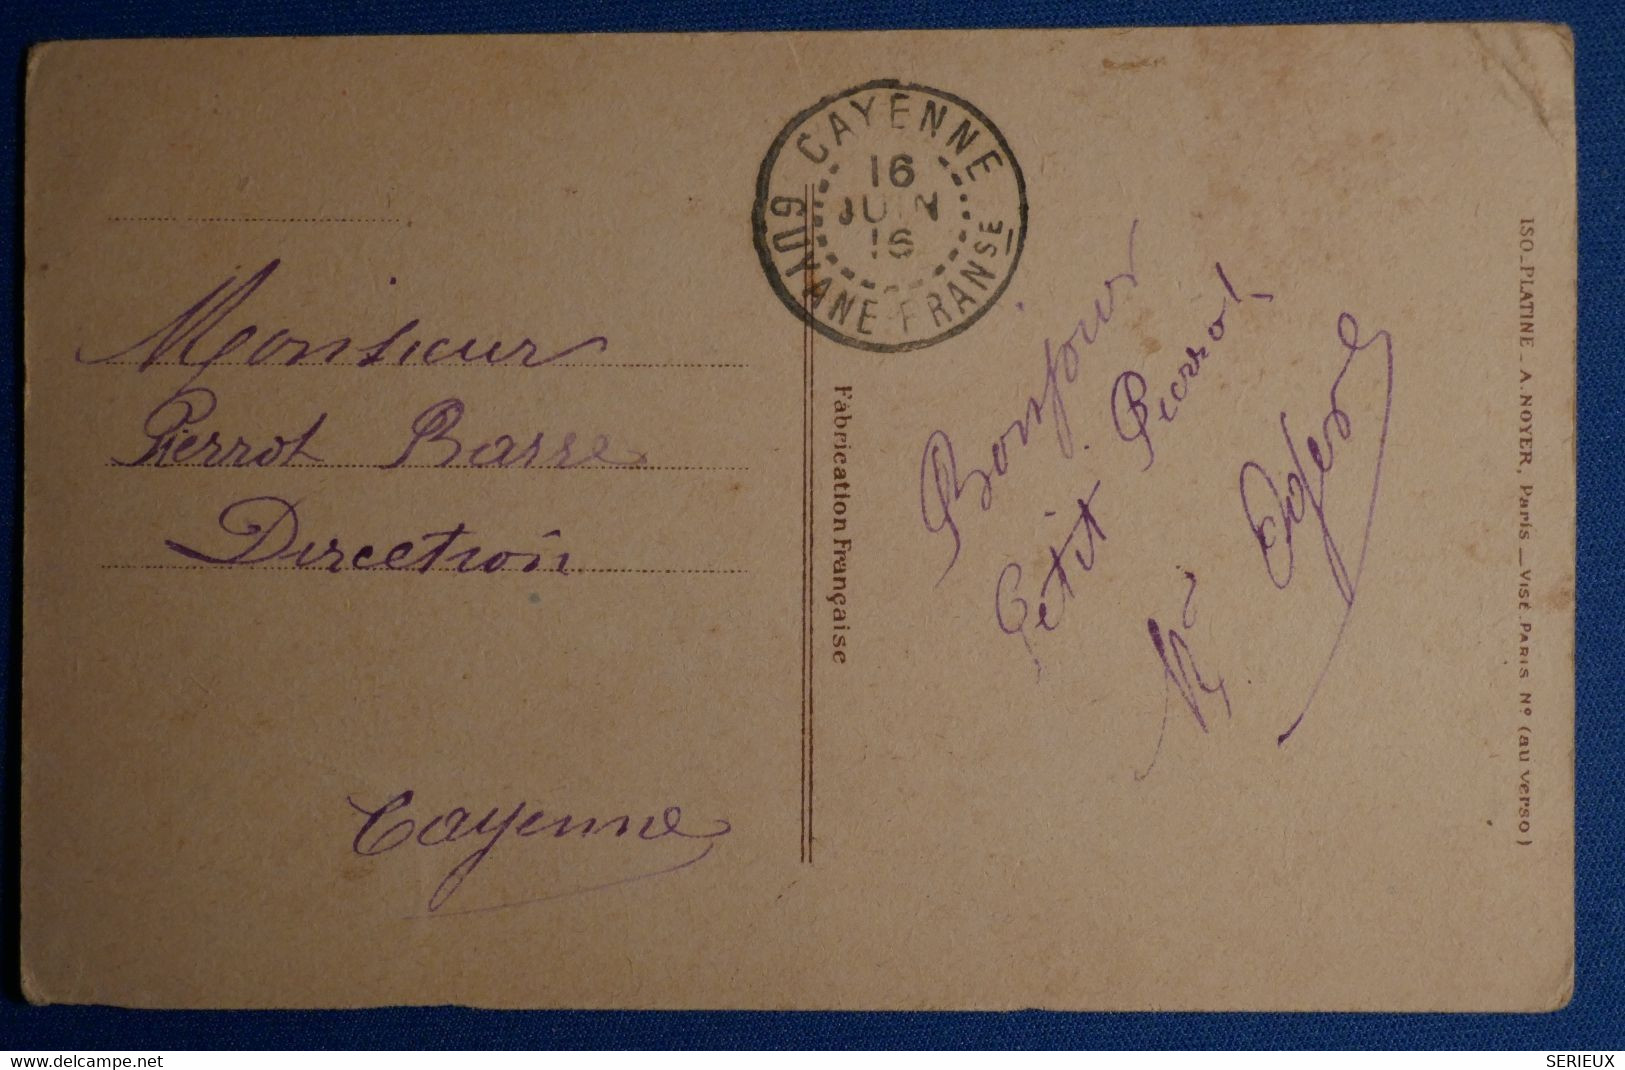 CAYENNE
16
JUIN
16
GUYANE FRANSE
Monsieur
Pierrot Barre
Direction
Cayenne
Bonjour
Petit Pierrot
Fabrication Française
ISO_PLATINE _ A. NOYER, Paris _ VISÉ PARIS Nº (au verso)
www.delcampe.net
SERIEUX